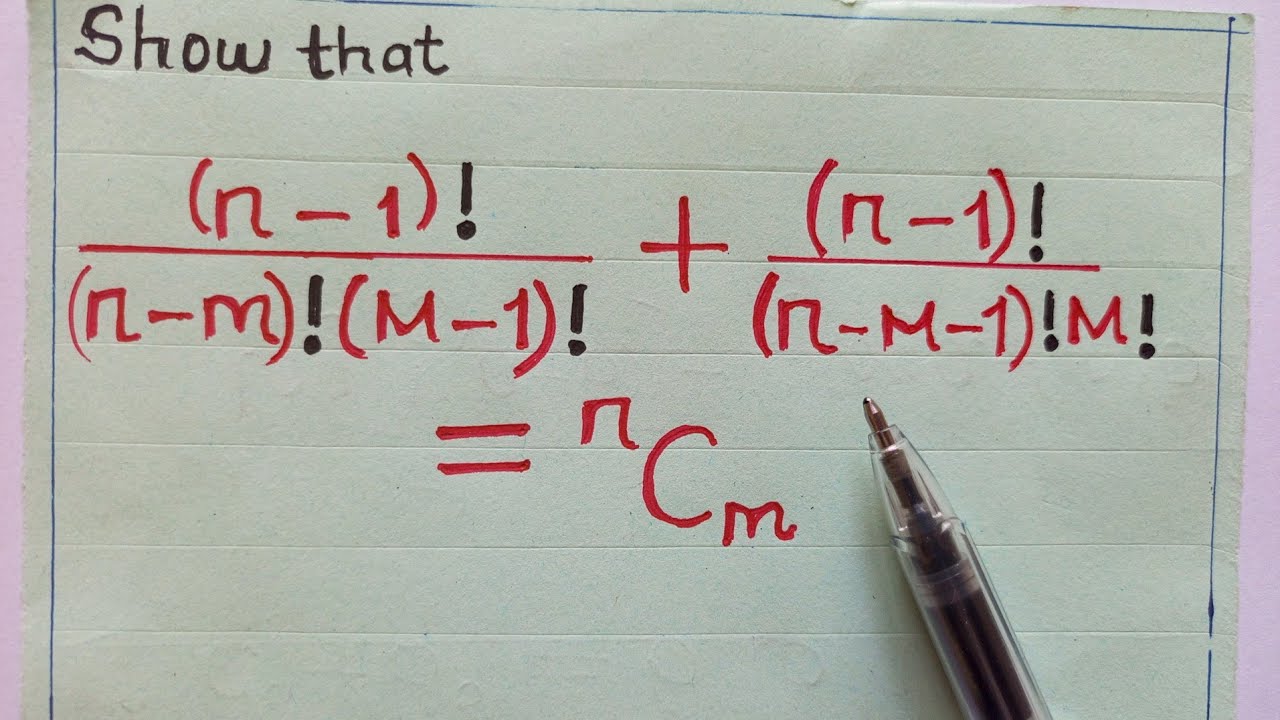 Show that
(n-1)! / (n-m)!(M-1)! + (n-1)! / (n-M-1)!M!
= ⁿCₘ